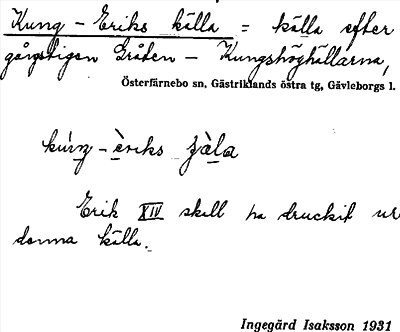 Kung-Eriks källa = källa efter
gångstigen Gråten - Kungshöghällarna,
Österfärnebo sn, Gästriklands östra tg, Gävleborgs l.
kúng-èriks ʃä̀la
Erik XIV skall ha druckit ur
denna källa.
Ingegärd Isaksson 1931